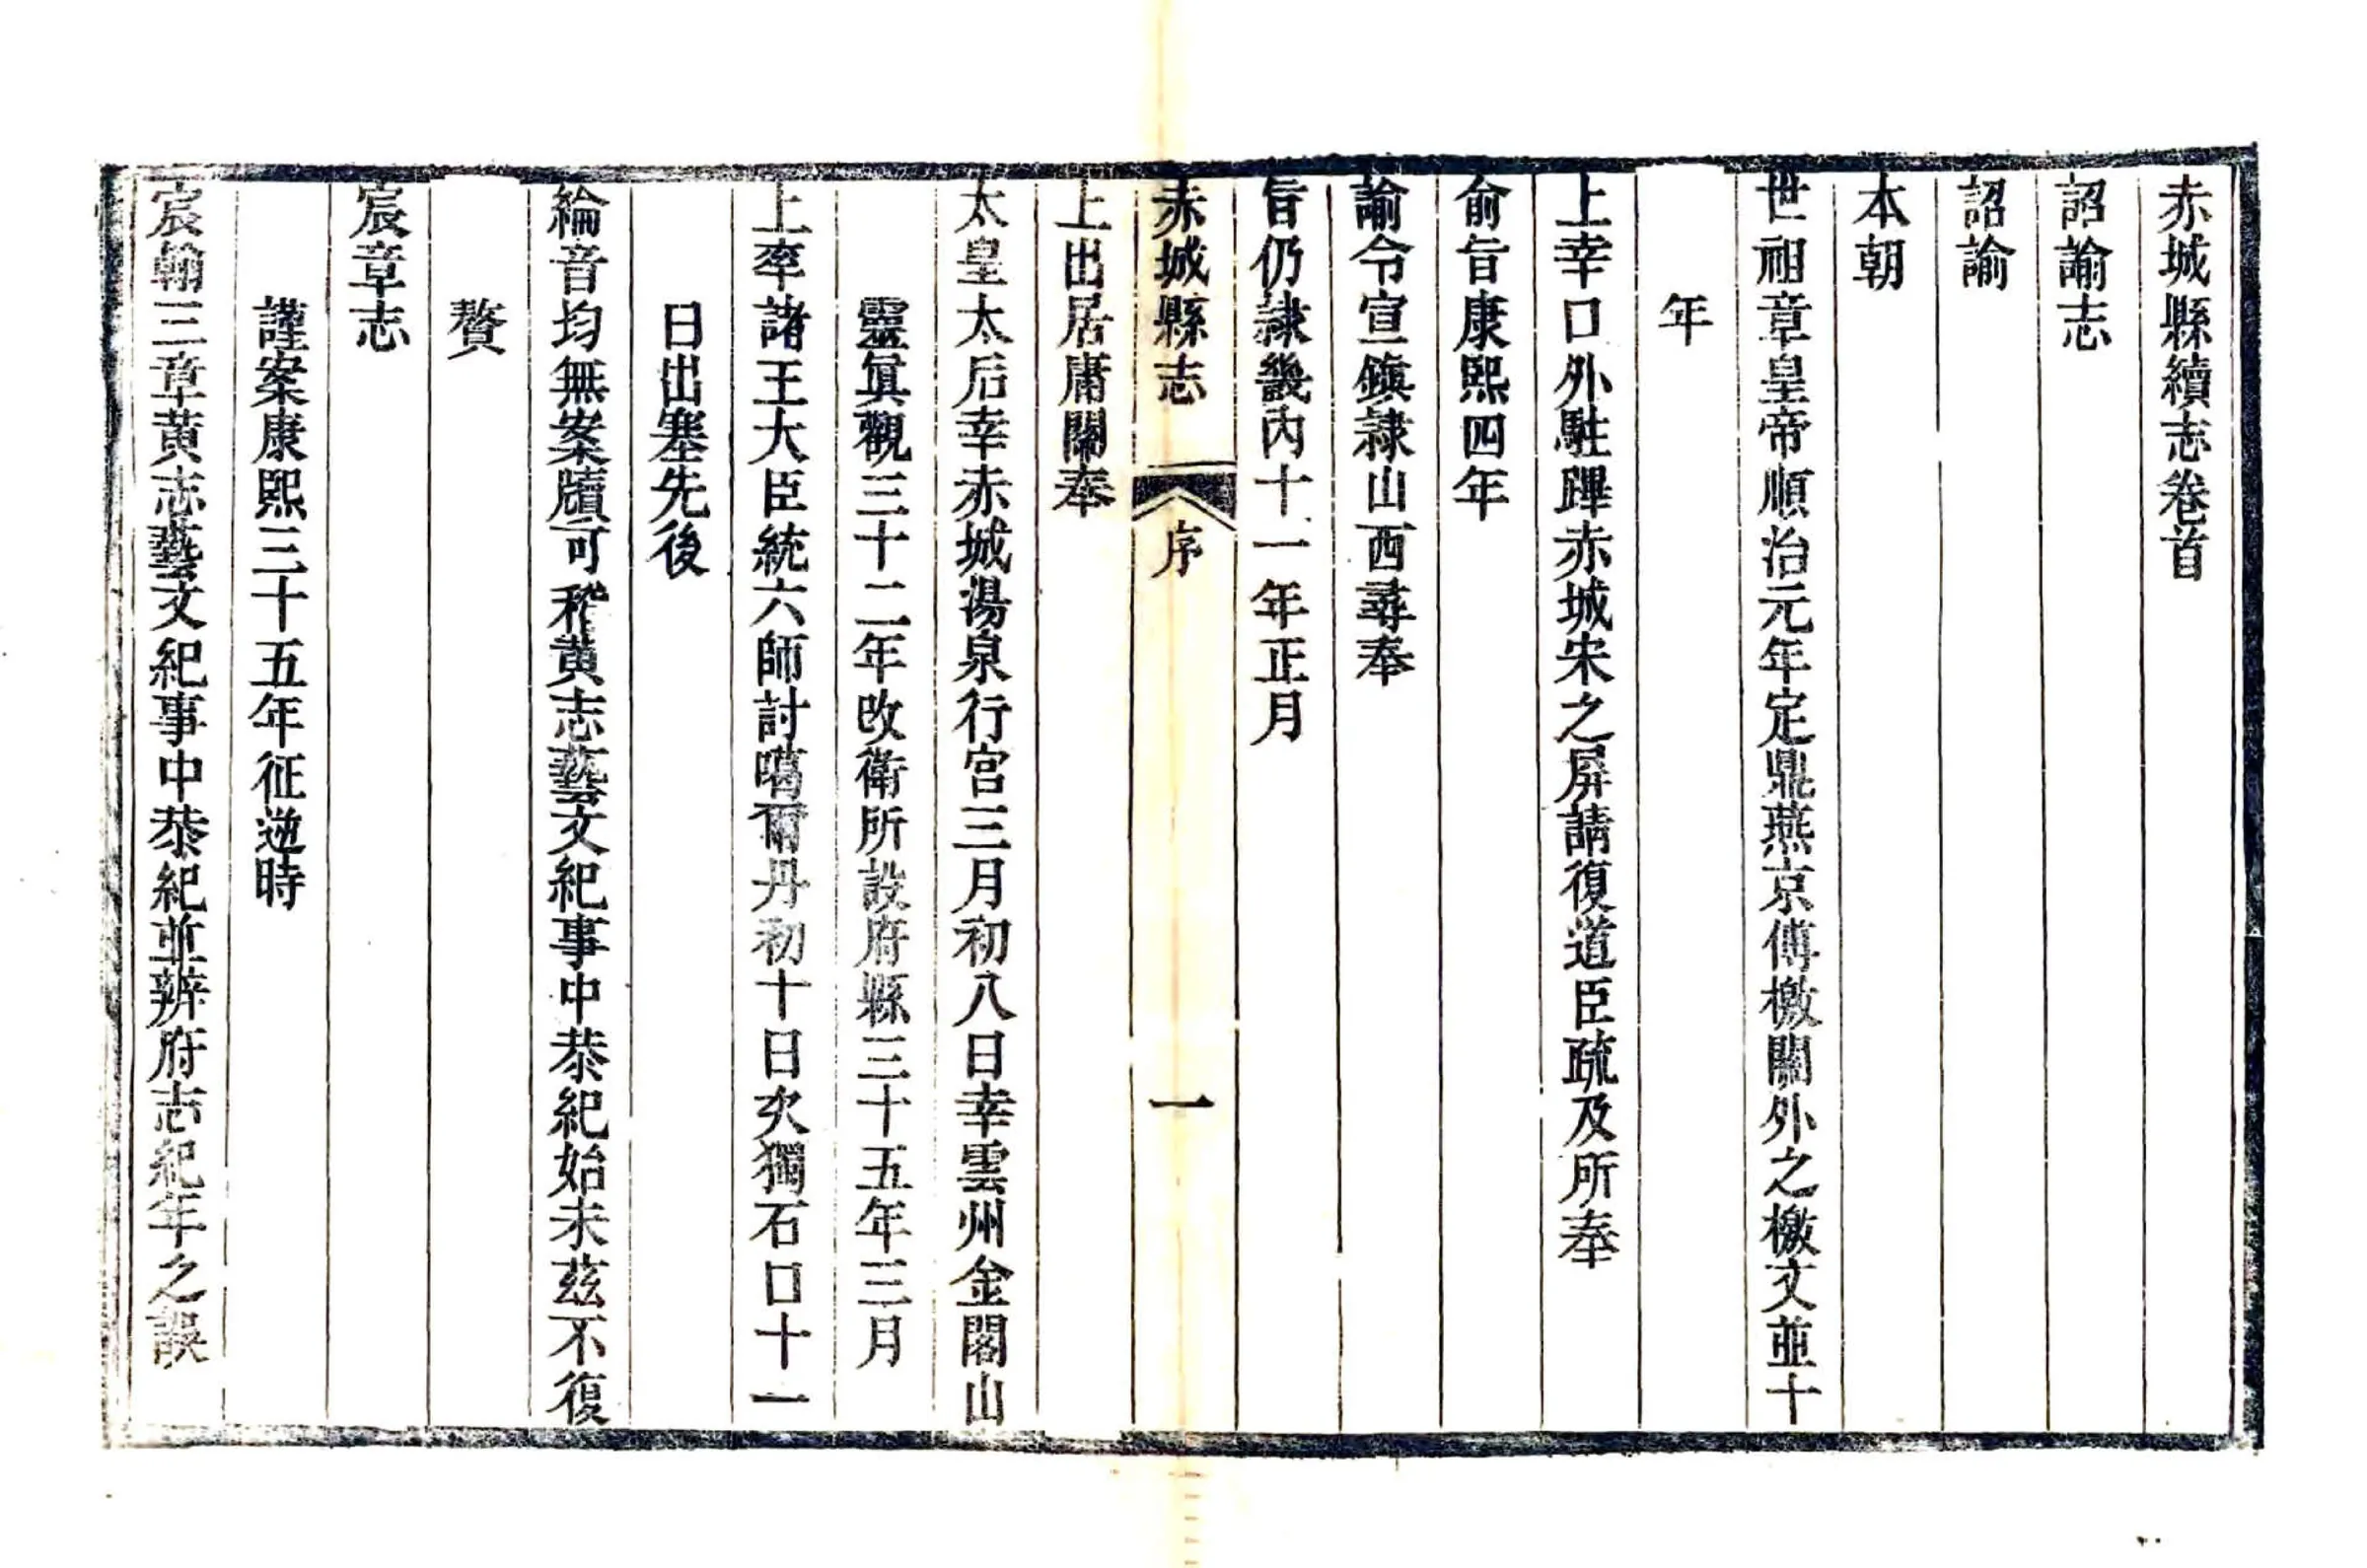 赤城縣續志卷首
詔諭志
詔諭
本朝
世祖章皇帝順治元年定鼎燕京傳檄關外之檄文並十
年
上幸口外駐蹕赤城宋之屏請復道臣疏及所奉
俞旨康熙四年
諭令宣鎮隸山西尋奉
旨仍隸畿內十一年正月
赤城縣志 序 一
上出居庸關奉
太皇太后幸赤城湯泉行宮三月初八日幸雲州金閣山
靈眞觀三十二年改衛所設府縣三十五年三月
上率諸王大臣統六師討噶爾丹初十日次獨石口十一
日出塞先後
綸音均無案牘可稽黄志藝文紀事中恭紀始末茲不復
贅
宸章志
謹案康熙三十五年征逆時
宸翰三章黄志藝文紀事中恭紀並辨府志紀年之誤